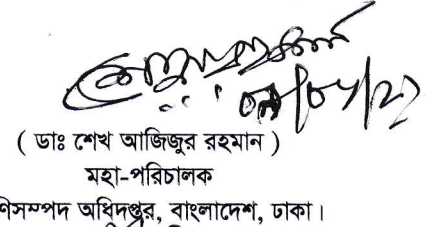 ( ডাঃ শেখ আজিজুর রহমান )
মহা-পরিচালক
ণিসম্পদ অধিদপ্তর, বাংলাদেশ, ঢাকা।